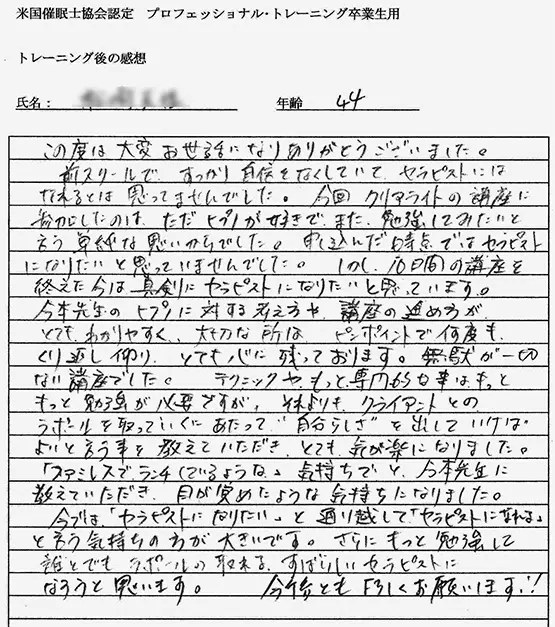 米国催眠士協会認定　プロフェッショナル・トレーニング卒業生用
トレーニング後の感想
氏名：
年齢　44
この度は大変お世話になりありがとうございました。
前スクールで、すっかり自信をなくしていて、セラピストには
なれるとは思ってませんでした。今回クリアライトの講座に
参加したのは、ただヒプノが好きで、また、勉強してみたいと
言う単純な思いからでした。申し込んだ時点ではセラピスト
になりたいと思っていませんでした。しかし、10日間の講座を
終えた今は真剣にセラピストになりたいと思っています。
今本先生のヒプノに対する考え方や、講座の進め方が
とてもわかりやすく、大切な所は ピンポイントで何度も、
くり返し仰り、とても心に残っております。無駄が一切
ない講座でした。 テクニックや、もっと専門的な事は、もっと
もっと勉強が必要ですが、それよりも、クライアントとの
ラポールを取っていくにあたって“自分らしさ”を出していけば
よいと言う事を教えていただき、とても、気が楽になりました。
「ステミレスでランチしているような。」気持ちで、と、今本先生に
教えていただき、目が覚めたような気持ちになりました。
今では、「セラピストになりたい」と通り越して「セラピストになれる」
と言う気持ちの方が大きいです。さらにもっと勉強して
誰とでもラポールの取れる、すばらしいセラピストに
なろうと思います。 今後とも よろしくお願いします!!